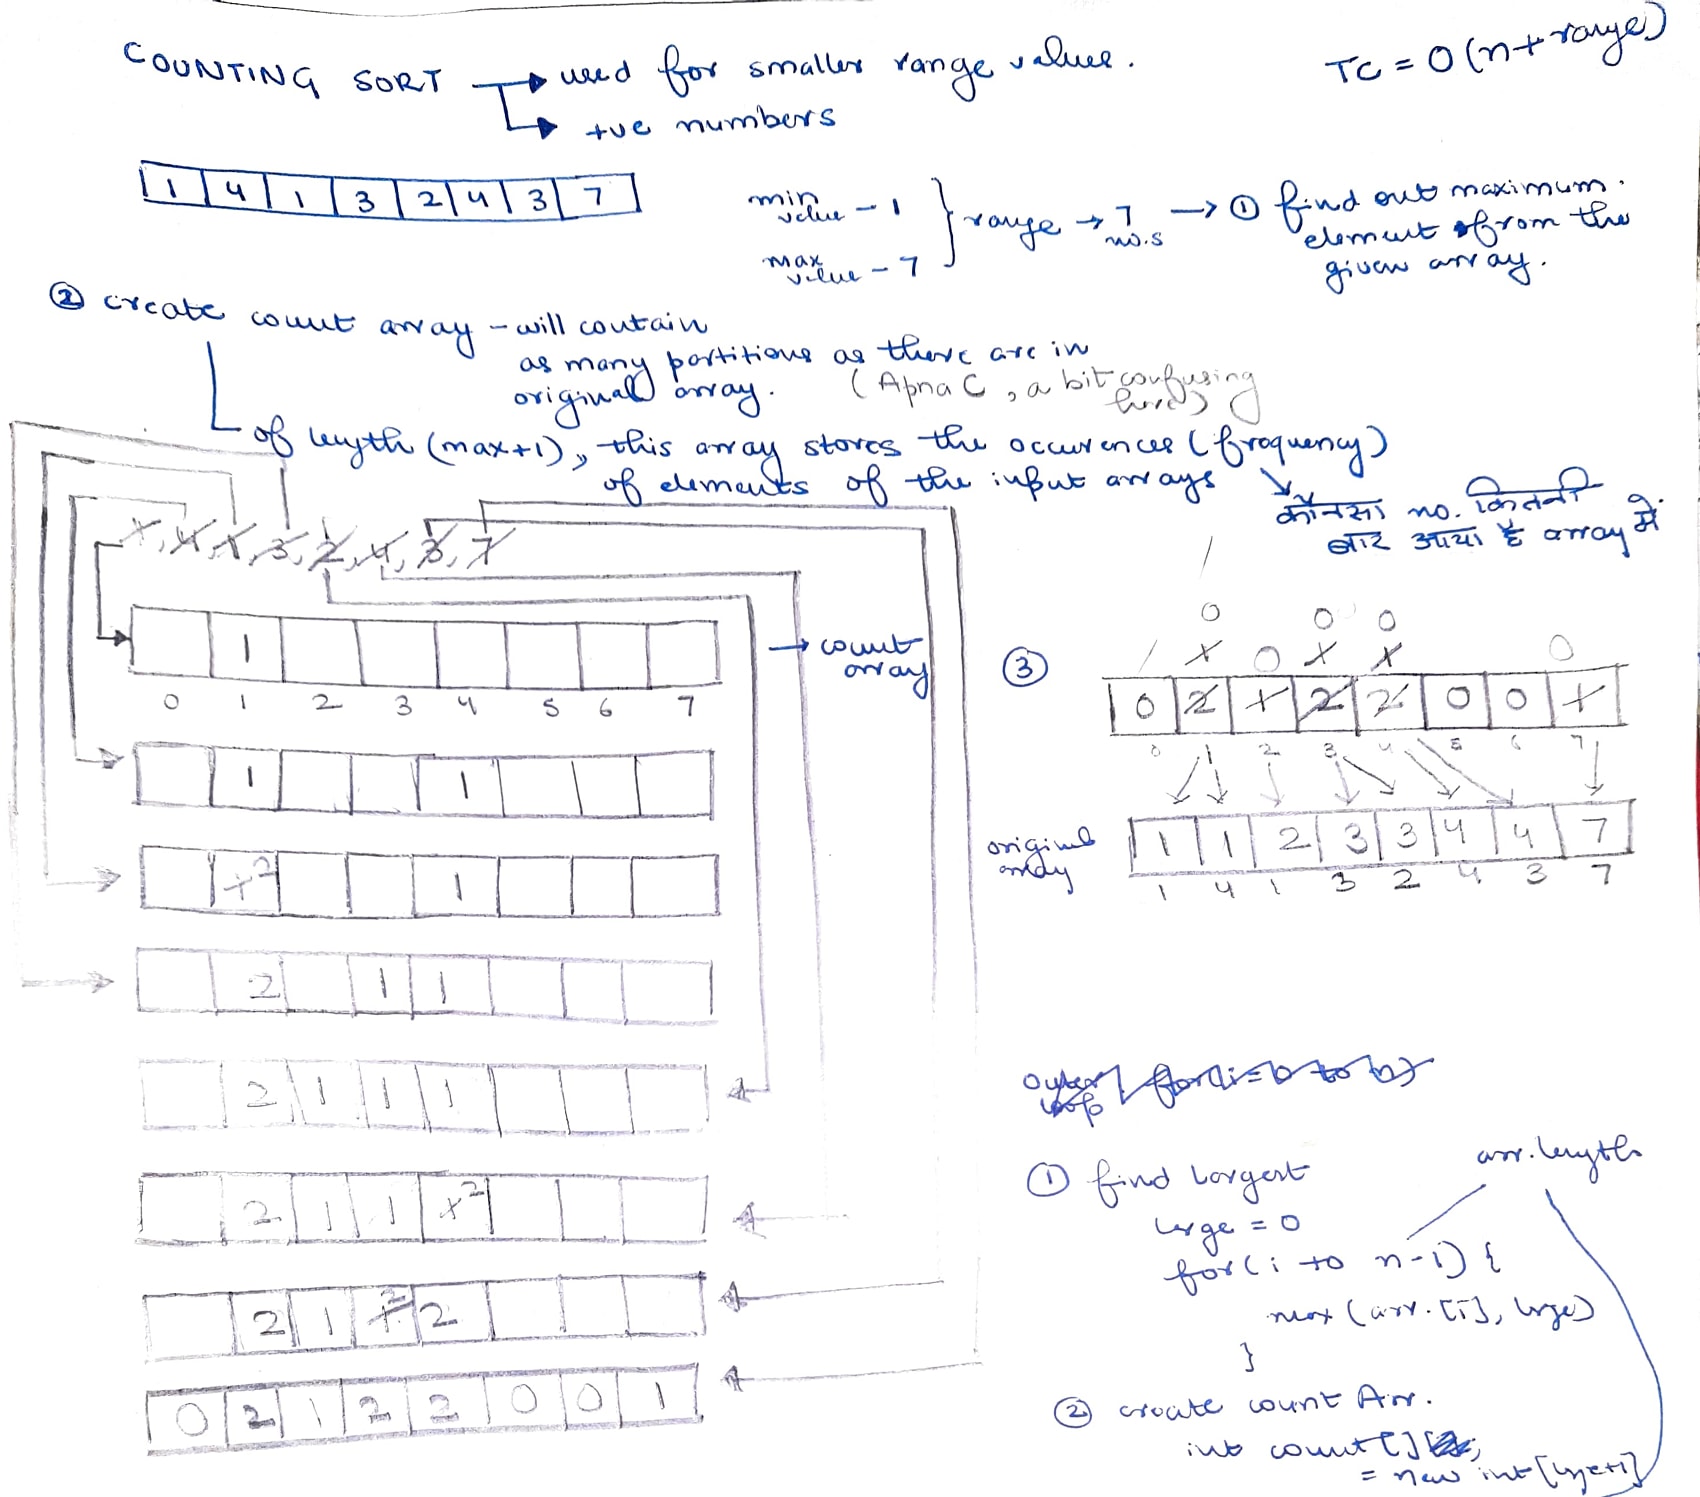 COUNTING SORT → used for smaller range values.
→ +ve numbers
TC = O(n+range)
1 4 1 3 2 4 3 7
min value - 1
max value - 7
} range → 7 no.s → ① find out maximum element from the given array.
② create count array - will contain
as many partitions as there are in
original array. (Apna C, a bit confusing
here)
of length (max+1), this array stores the occurences (frequency)
of elements of the input arrays
कौनसा no. कितनी
बार आया है array में
1, 4, 1, 3, 2, 4, 3, 7
1
0 1 2 3 4 5 6 7
→ count
array
1 1
1 2 1
2 1 1
2 1 1 1
2 1 1 1 2
2 1 1 2 2
0 2 1 2 2 0 0 1
③
0 0 0
1 0 1 1 0
0 2 1 2 2 0 0 1
0 1 2 3 4 5 6 7
original
array
1 1 2 3 3 4 4 7
1 4 1 3 2 4 3 7
outer
loop
① find largest
large = 0
arr.length
for(i to n-1) {
max (arr.[i], large)
}
② create count Arr.
int count[]
= new int[large+1]